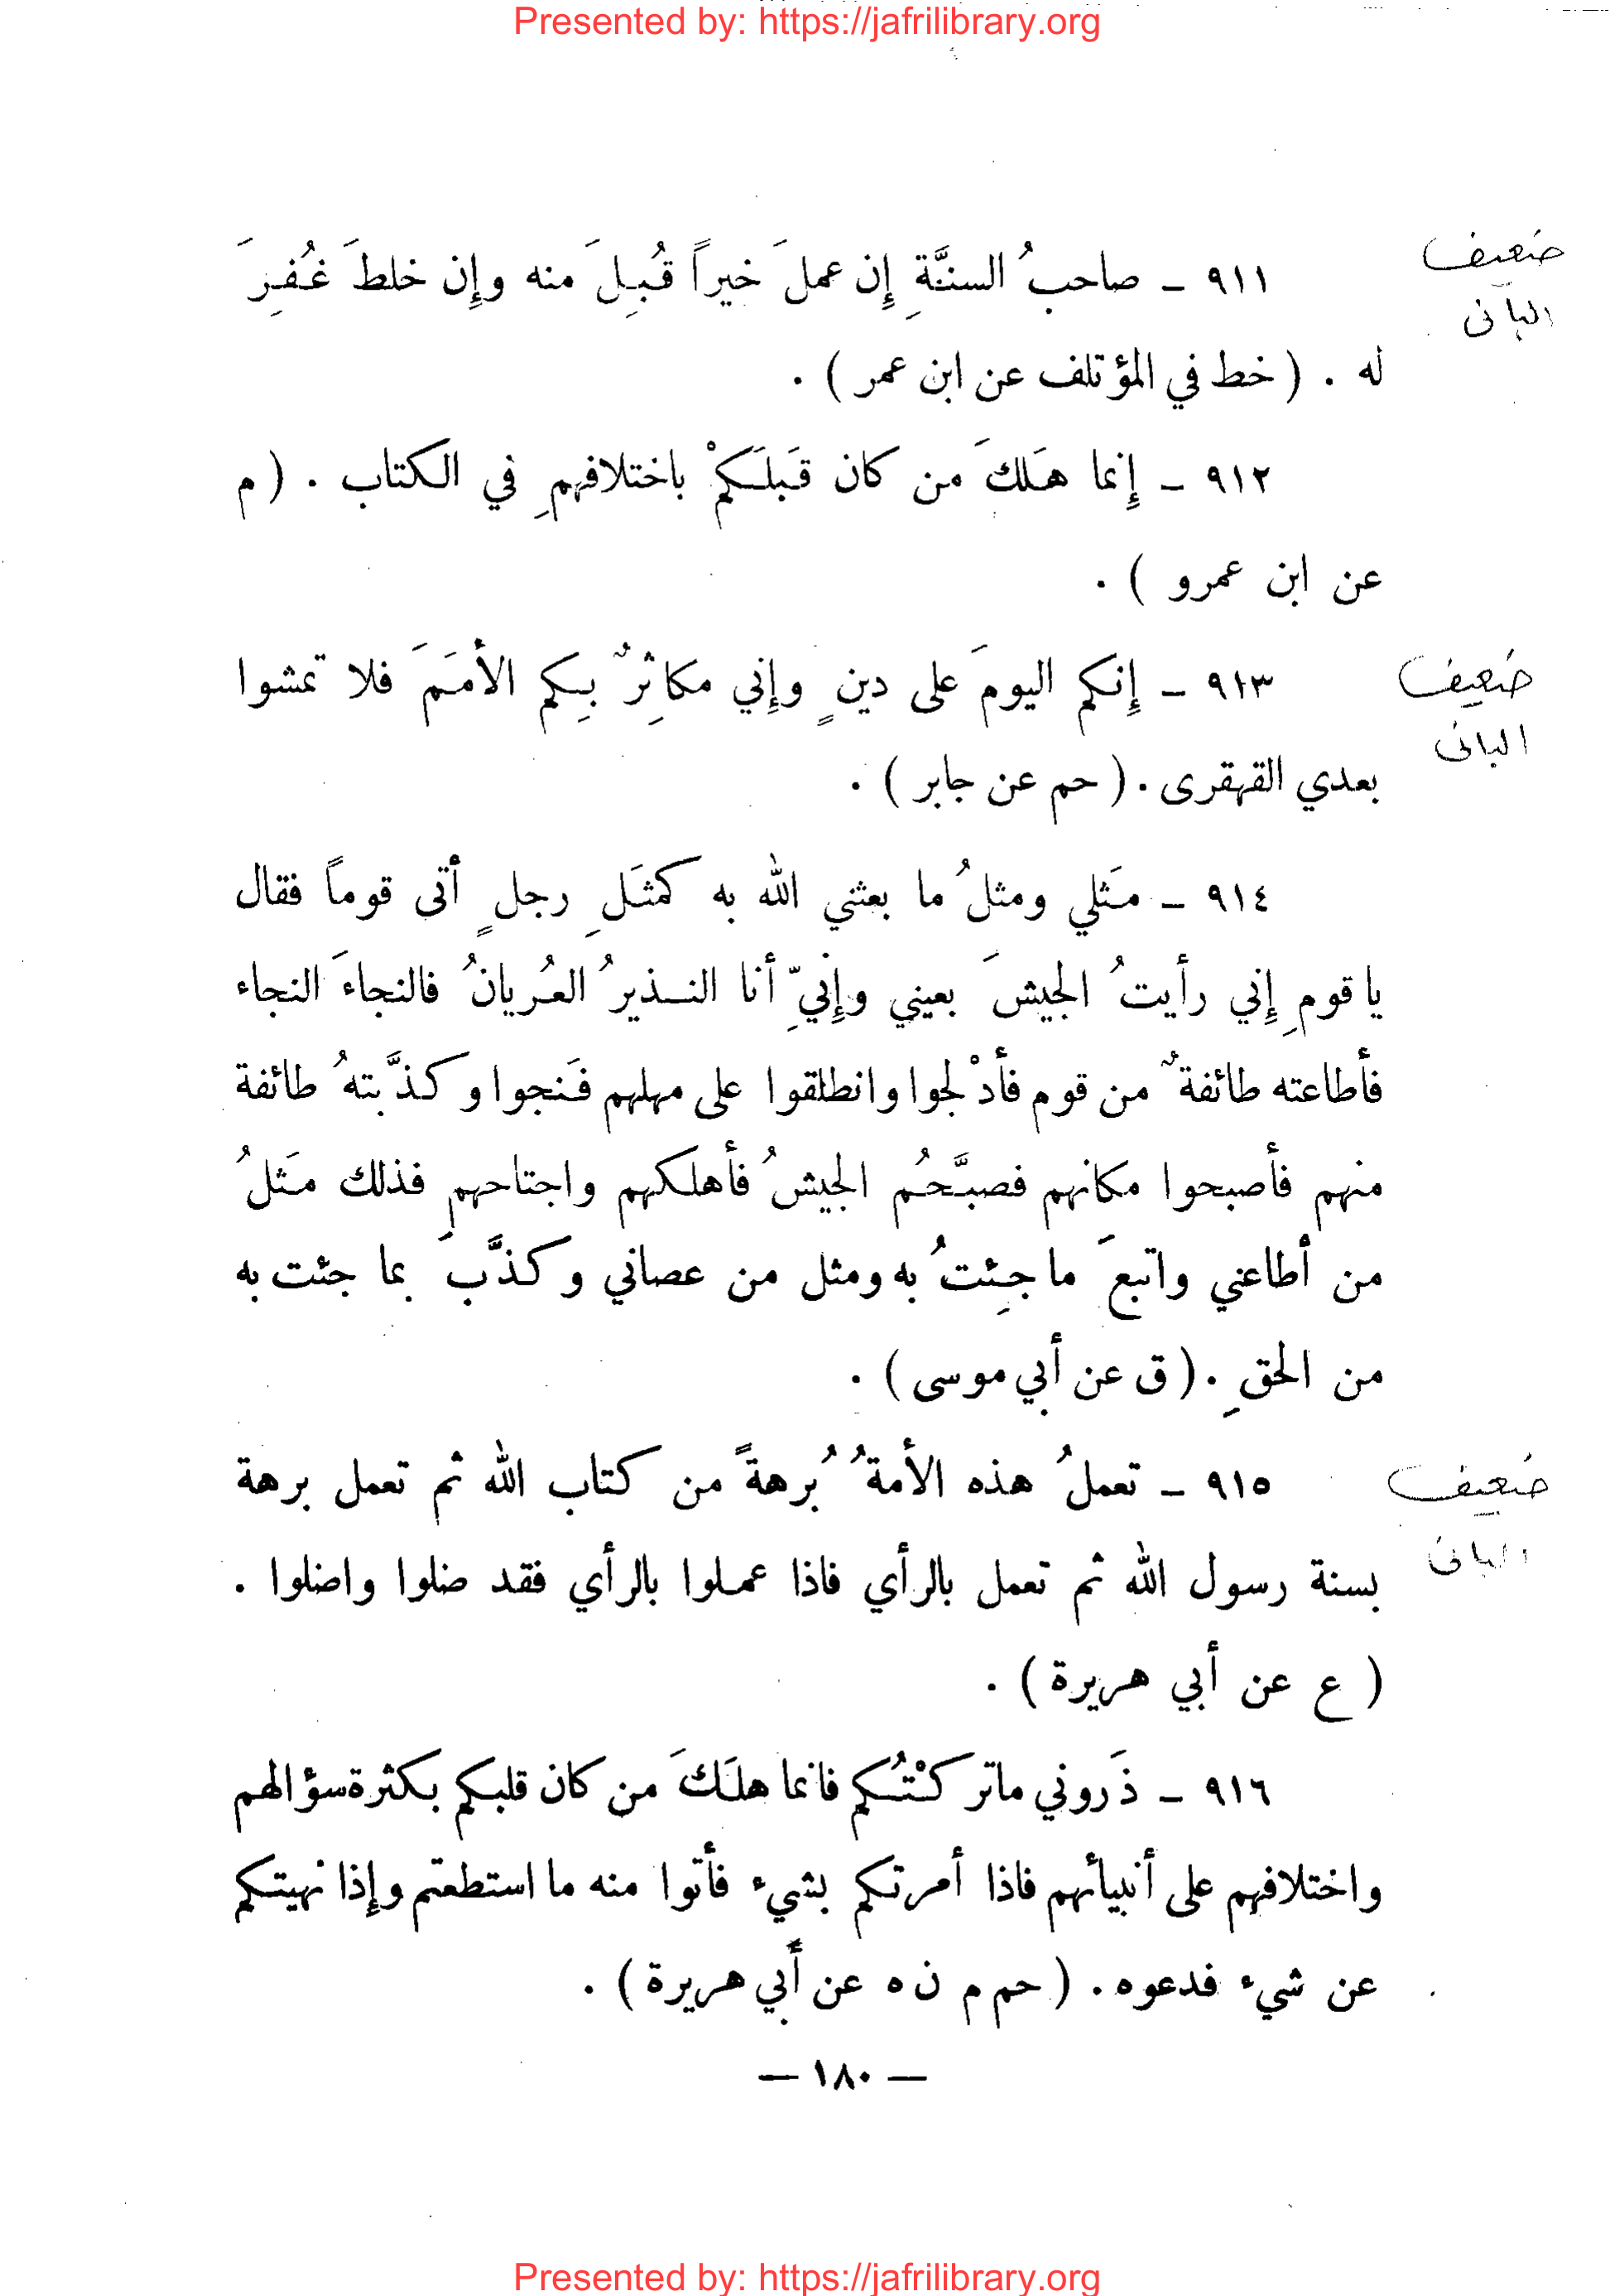 Presented by: https://jafrilibrary.org
ضعيف
البانى
٩١١ – صاحبُ السنَّةِ إِن عملَ خيراً قُبِلَ منه وإِن خلطَ غُفِرَ
له . ( خط في المؤتلف عن ابن عمر ) .
٩١٢ – إِنما هَلكَ من كان قَبلَكمْ باختلافهمِ في الكتاب . ( م
عن ابن عمرو ) .
ضعيف
البانى
٩١٣ – إِنكم اليومَ على دينٍ وإِني مكاثِرٌ بِكم الأمَمَ فلا تمشوا
بعدي القهقرى . ( حم عن جابر ) .
٩١٤ – مَثلي ومثلُ ما بعثني الله به كمثَلِ رجلٍ أتى قوماً فقال
يا قومِ إِني رأيتُ الجيشَ بعيني وإِنيِّ أنا النـذيرُ العُريانُ فالنجاءَ النجاء
فأطاعته طائفةٌ من قوم فأدْلجوا وانطلقوا على مهلهم فَنجوا وكذَّبتهُ طائفة
منهم فأصبحوا مكانهم فصبَّحُم الجيشُ فأهلكهم واجتاحهمِ فذلك مَثلُ
من أطاعني واتبعَ ما جِئتُ به ومثل من عصاني وكذَّبَ بما جئت به
من الحقِ . ( ق عن أبي موسى ) .
ضعيف
البانى
٩١٥ – تعملُ هذه الأمةُ بُرهةً من كتاب الله ثم تعمل برهة
بسنة رسول الله ثم تعمل بالرأي فاذا عملوا بالرأي فقد ضلوا واضلوا .
( ع عن أبي هريرة ) .
٩١٦ – ذَروني ماتركْتُكم فانما هلَكَ من كان قلبكم بكثرة سؤالهم
واختلافهم على أنبيأئهم فاذا أمرتكم بشيء فأتوا منه ما استطعتم وإذا نهيتكم
عن شيء فدعوه . ( حم م ن ه عن أبي هريرة ) .
— ١٨٠ —
Presented by: https://jafrilibrary.org